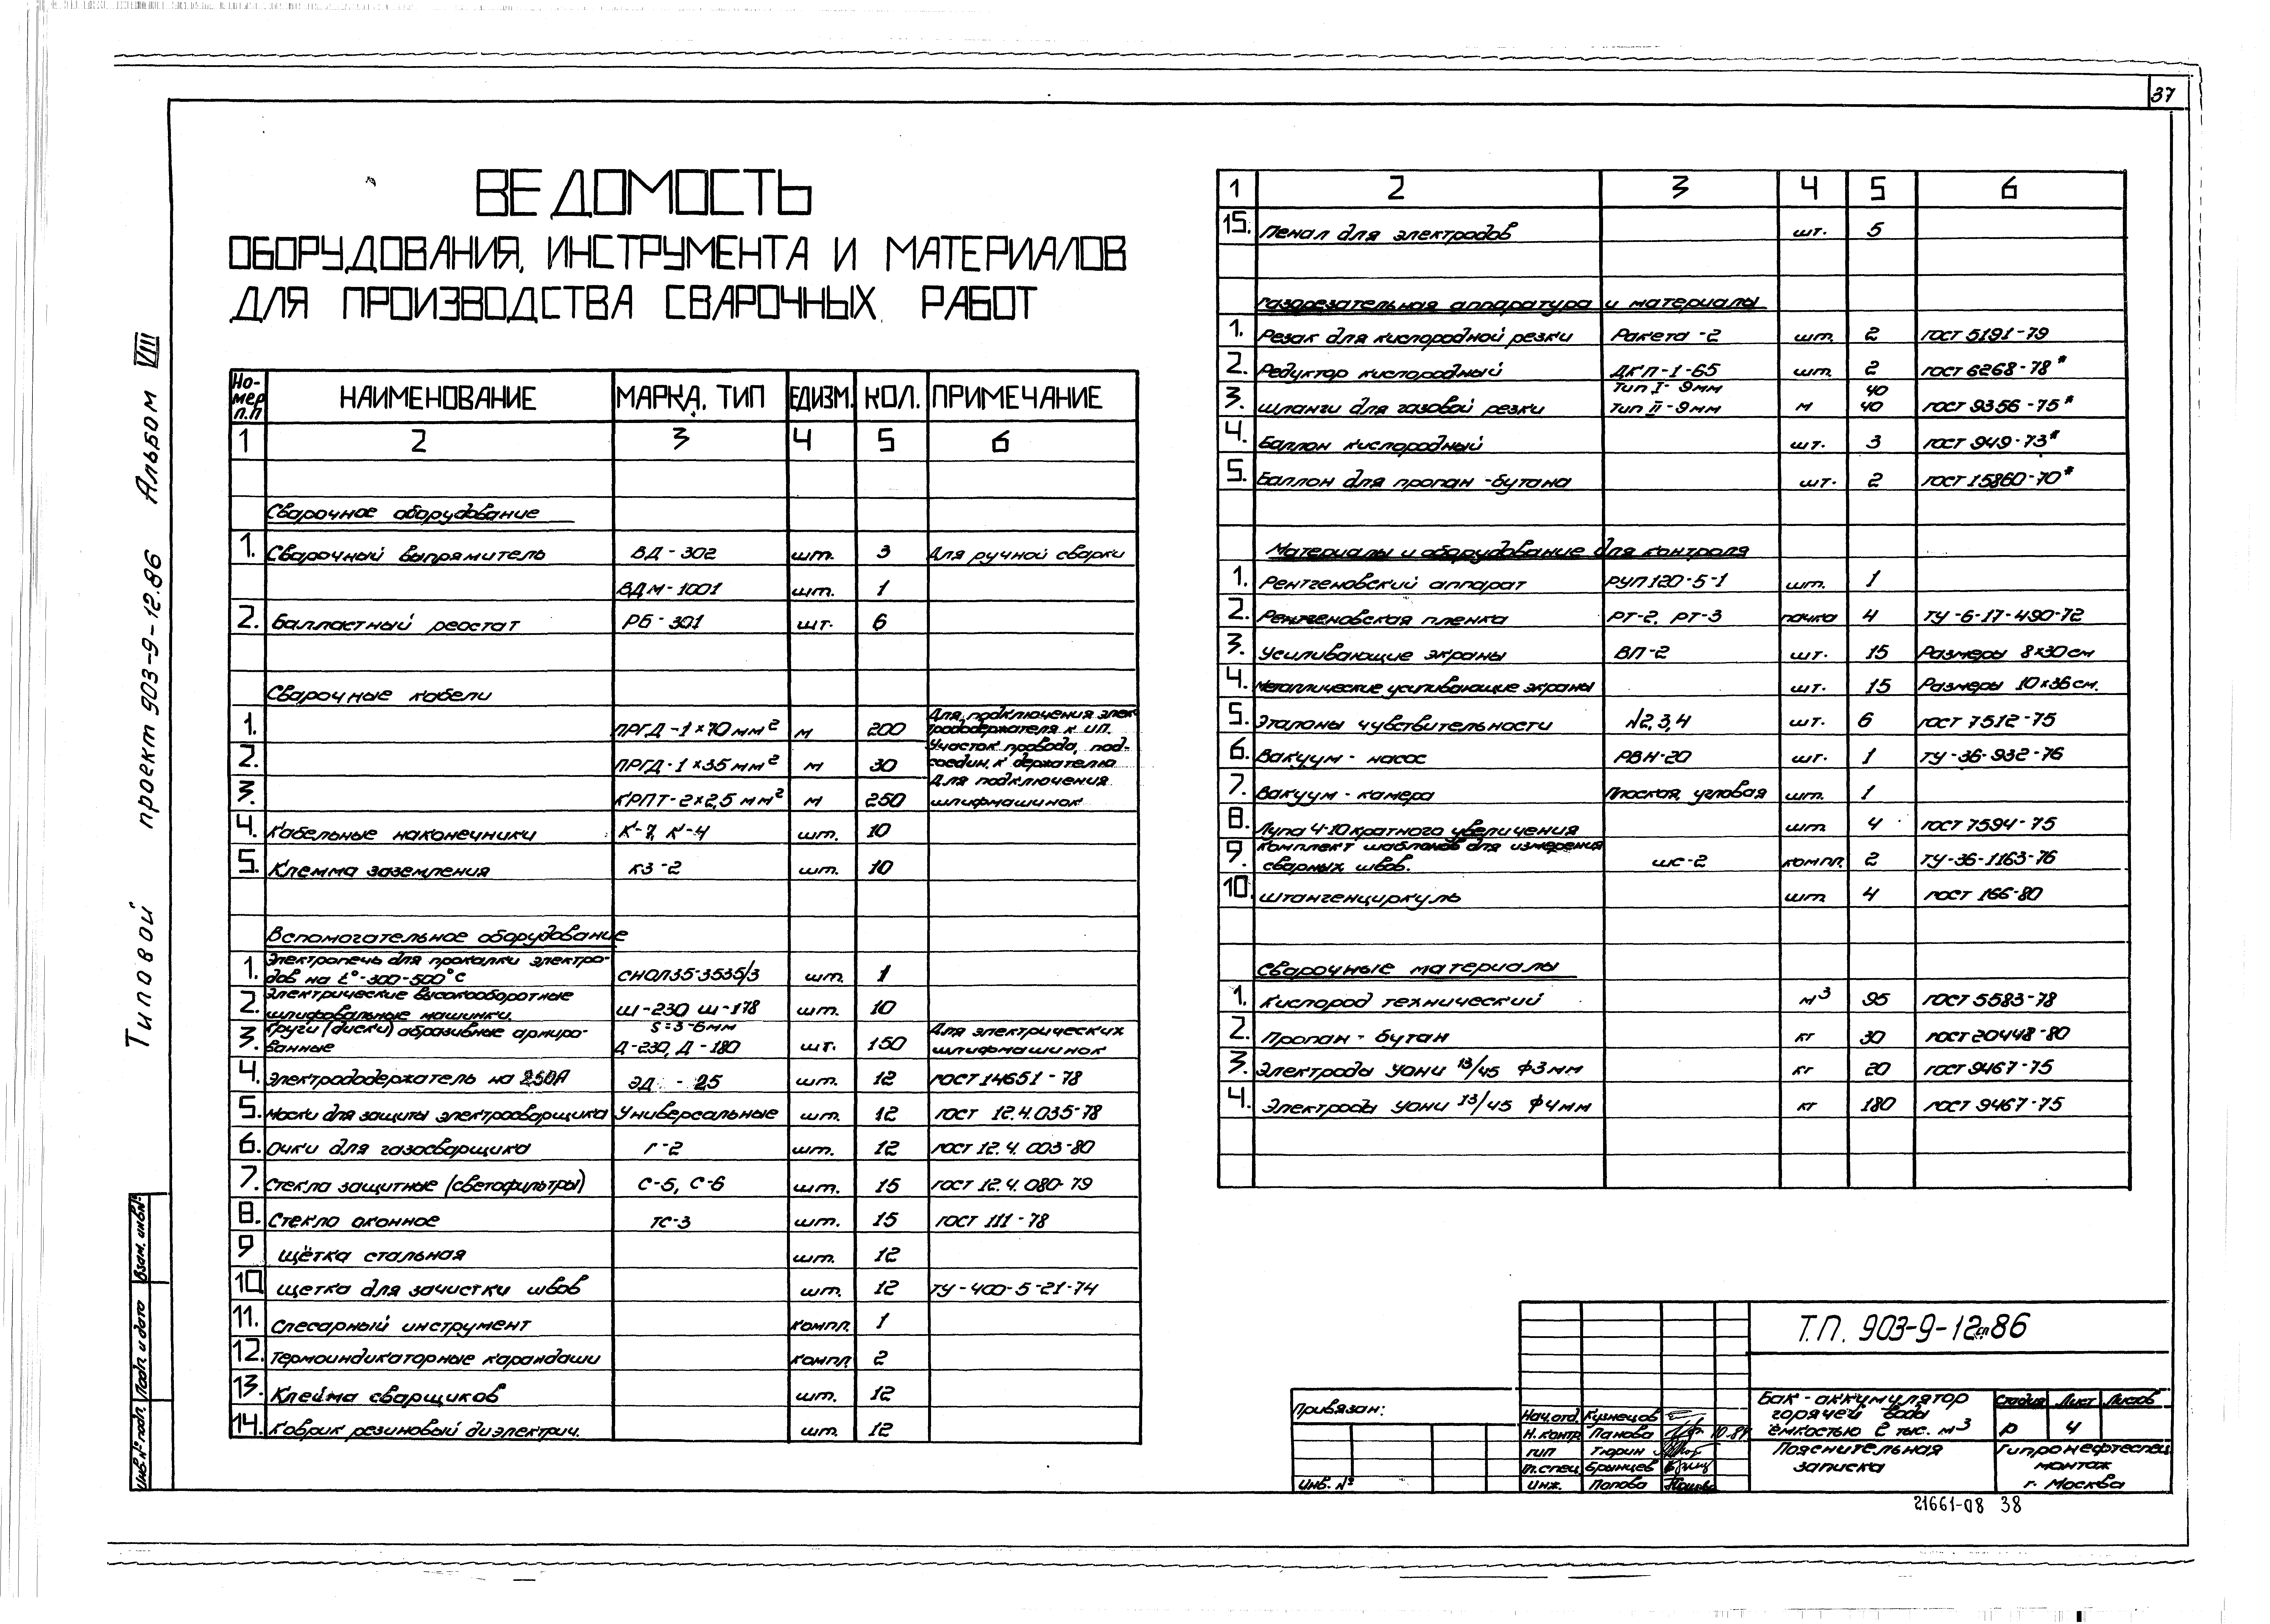 37
Типовой проект 903-9-12.86 Альбом VIII
ВЕДОМОСТЬ
ОБОРУДОВАНИЯ, ИНСТРУМЕНТА И МАТЕРИАЛОВ
ДЛЯ ПРОИЗВОДСТВА СВАРОЧНЫХ РАБОТ
Номер п.п НАИМЕНОВАНИЕ МАРКА, ТИП ЕД.ИЗМ. КОЛ. ПРИМЕЧАНИЕ
1 2 3 4 5 6
Сварочное оборудование
1. Сварочный выпрямитель ВД-302 шт. 3 Для ручной сварки
ВДМ-1001 шт. 1
2. Балластный реостат РБ-301 шт. 6
Сварочные кабели
1. ПРГД-1×70 мм² м 200 Для подключения электрододержателя к ип.
2. ПРГД-1×35 мм² м 30 Участок провода, подсоедин. к держателю
3. КРПТ-2×2,5 мм² м 250 Для подключения шлифмашинок
4. Кабельные наконечники К-7, К-4 шт. 10
5. Клемма заземления КЗ-2 шт. 10
Вспомогательное оборудование
1. Электропечь для прокалки электродов на t°-300-500°С СНОЛ35-3535/3 шт. 1
2. Электрические высокооборотные шлифовальные машинки. Ш-230 Ш-178 шт. 10
3. Круги (диски) абразивные армированные S=3-6мм Д-230, Д-180 шт. 150 Для электрических шлифмашинок
4. Электрододержатель на 250А ЭД - 25 шт. 12 ГОСТ 14651-78
5. Маски для защиты электросварщика Универсальные шт. 12 ГОСТ 12.4.035-78
6. Очки для газосварщика Г-2 шт. 12 ГОСТ 12.4.003-80
7. Стекла защитные (светофильтры) С-5, С-6 шт. 15 ГОСТ 12.4.080-79
8. Стекло оконное ТС-3 шт. 15 ГОСТ 111-78
9 Щётка стальная шт. 12
10 Щетка для зачистки швов шт. 12 ТУ-400-5-21-74
11. Слесарный инструмент компл. 1
12. Термоиндикаторные карандаши компл. 2
13. Клейма сварщиков шт. 12
14. Коврик резиновый диэлектрич. шт. 12
1 2 3 4 5 6
15. Пенал для электродов шт. 5
Газорезательная аппаратура и материалы
1. Резак для кислородной резки Ракета-2 шт. 2 ГОСТ 5191-79
2. Редуктор кислородный ДКП-1-65 шт. 2 ГОСТ 6268-78*
3. Шланги для газовой резки Тип I-9мм Тип II-9мм м 40 40 ГОСТ 9356-75*
4. Баллон кислородный шт. 3 ГОСТ 949-73*
5. Баллон для пропан-бутана шт. 2 ГОСТ 15860-70*
Материалы и оборудование для контроля
1. Рентгеновский аппарат РУП120-5-1 шт. 1
2. Рентгеновская пленка РТ-2, РТ-3 пачка 4 ТУ-6-17-490-72
3. Усиливающие экраны ВП-2 шт. 15 Размеры 8×30см
4. Металлические усиливающие экраны шт. 15 Размеры 10×36 см.
5. Эталоны чувствительности №2,3,4 шт. 6 ГОСТ 7512-75
6. Вакуум-насос РВН-20 шт. 1 ТУ-36-932-76
7. Вакуум-камера Плоская, угловая шт. 1
8. Лупа 4-10 кратного увеличения шт 4 ГОСТ 7594-75
9. Комплект шаблонов для измерения сварных швов. ШС-2 компл. 2 ТУ-36-1163-76
10. Штангенциркуль шт 4 ГОСТ 166-80
Сварочные материалы
1. Кислород технический м³ 95 ГОСТ 5583-78
2. Пропан-бутан кг 30 ГОСТ 20448-80
3. Электроды УОНИ 13/45 Ф3мм кг 20 ГОСТ 9467-75
4. Электроды УОНИ 13/45 Ф4мм кг 180 ГОСТ 9467-75
Инв.№ подл. Подп. и дата Взам. инв№
Привязан:
Инв. №
Нач.отд. Кузнецов
Н.контр. Панова 10.84
ГИП Тюрин
Гл.спец. Брынцев
Инж. Попова
Т.П. 903-9-12сп86
Бак-аккумулятор
горячей воды
ёмкостью 2 тыс. м³
Пояснительная
записка
Стадия Лист Листов
Р 4
Гипронефтеспец
монтаж
г. Москва
21661-08 38